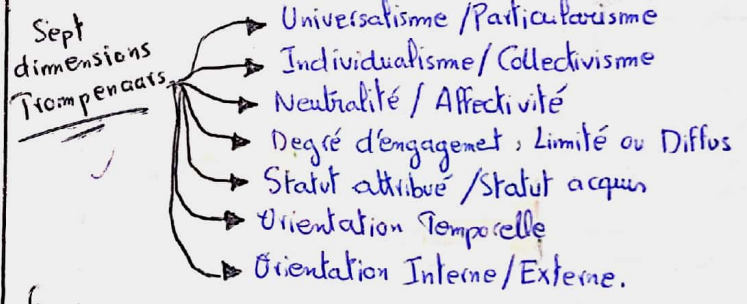 Sept
dimensions
Trompenaars
Universalisme / Particularisme
Individualisme / Collectivisme
Neutralité / Affectivité
Degré d'engagemet, Limité ou Diffus
Statut attribué / Statut acquis
Orientation Temporelle
Orientation Interne / Externe.